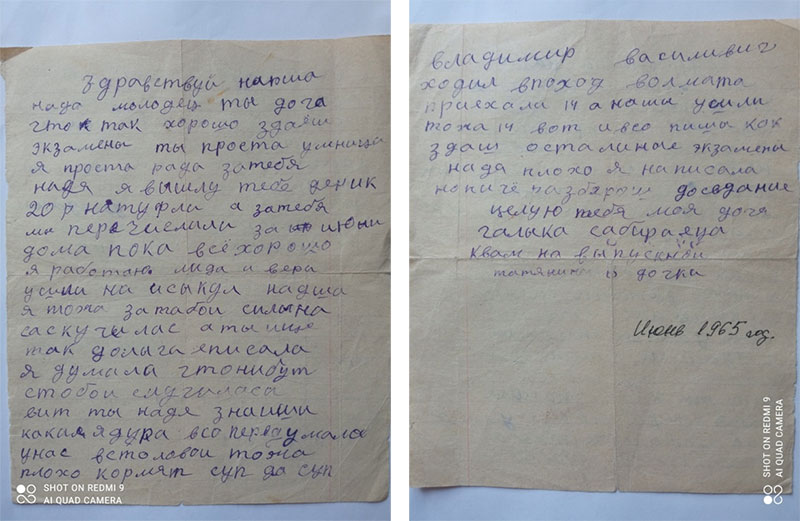 Здравствуй наша
надя молодец ты доча
что так хорошо здаёш
экзамены ты проста умница
я проста рада затебя
надя я вышлу тебе деник
20 р натуфли а затебя
мы перечислили за июни
дома пока всё хорошо
я работаю лида и вера
уехали на исыкул надша
я тожа затабой силына
саскучилас аты ище
так долыга неписала
я думала чтонибут
стобой случиласа
вит ты надя знаиши
какая ядура всо перва умалоо
унас встоловой тожа
плохо кормят суп да суп
SHOT ON REDMI 9
AI QUAD CAMERA
владимир василивич
ходил впоход волмата
приехали 14 а наши ушли
тожа 14 вот ивсо пиши как
здаш осталиные экзамены
надя плохо я написала
нопиче разбярош досвдание
целую тебя моя доча
галыка сабираяца
квам на выпускной
татянина дочка
Июнь 1965 год.
SHOT ON REDMI 9
AI QUAD CAMERA